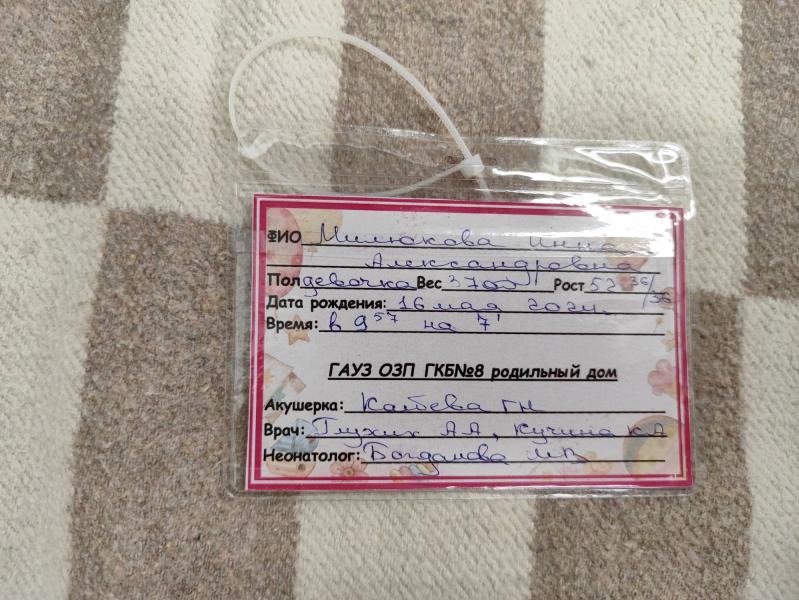 ФИО Милюкова Инна
Александровна
Пол девочка Вес 3700 Рост 52 36/36
Дата рождения: 16 мая 2024.
Время: в 9 57 на 7'
ГАУЗ ОЗП ГКБ№8 родильный дом
Акушерка: ГН
Врач: Глухих АА, Кучина КА
Неонатолог: Богданова МВ